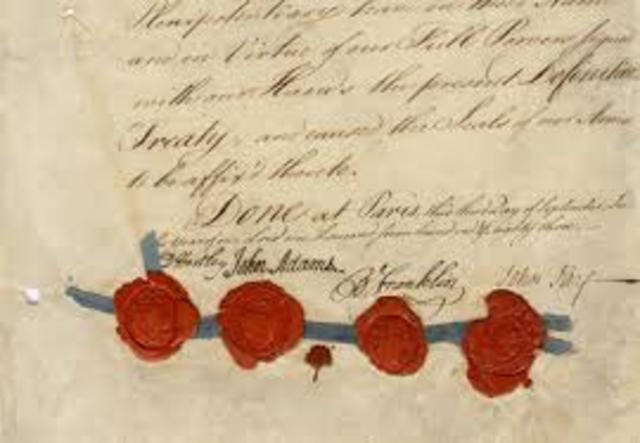 Plenipotentiaries have in their Name
and in Virtue of our Full Powers signed
with our Hands the present Definitive
Treaty, and caused the Seals of our Arms
to be affix'd thereto.
Done at Paris, this third day of September, In
the year of our Lord one thousand seven hundred & eighty three.
D Hartley John Adams. B Franklin John Jay